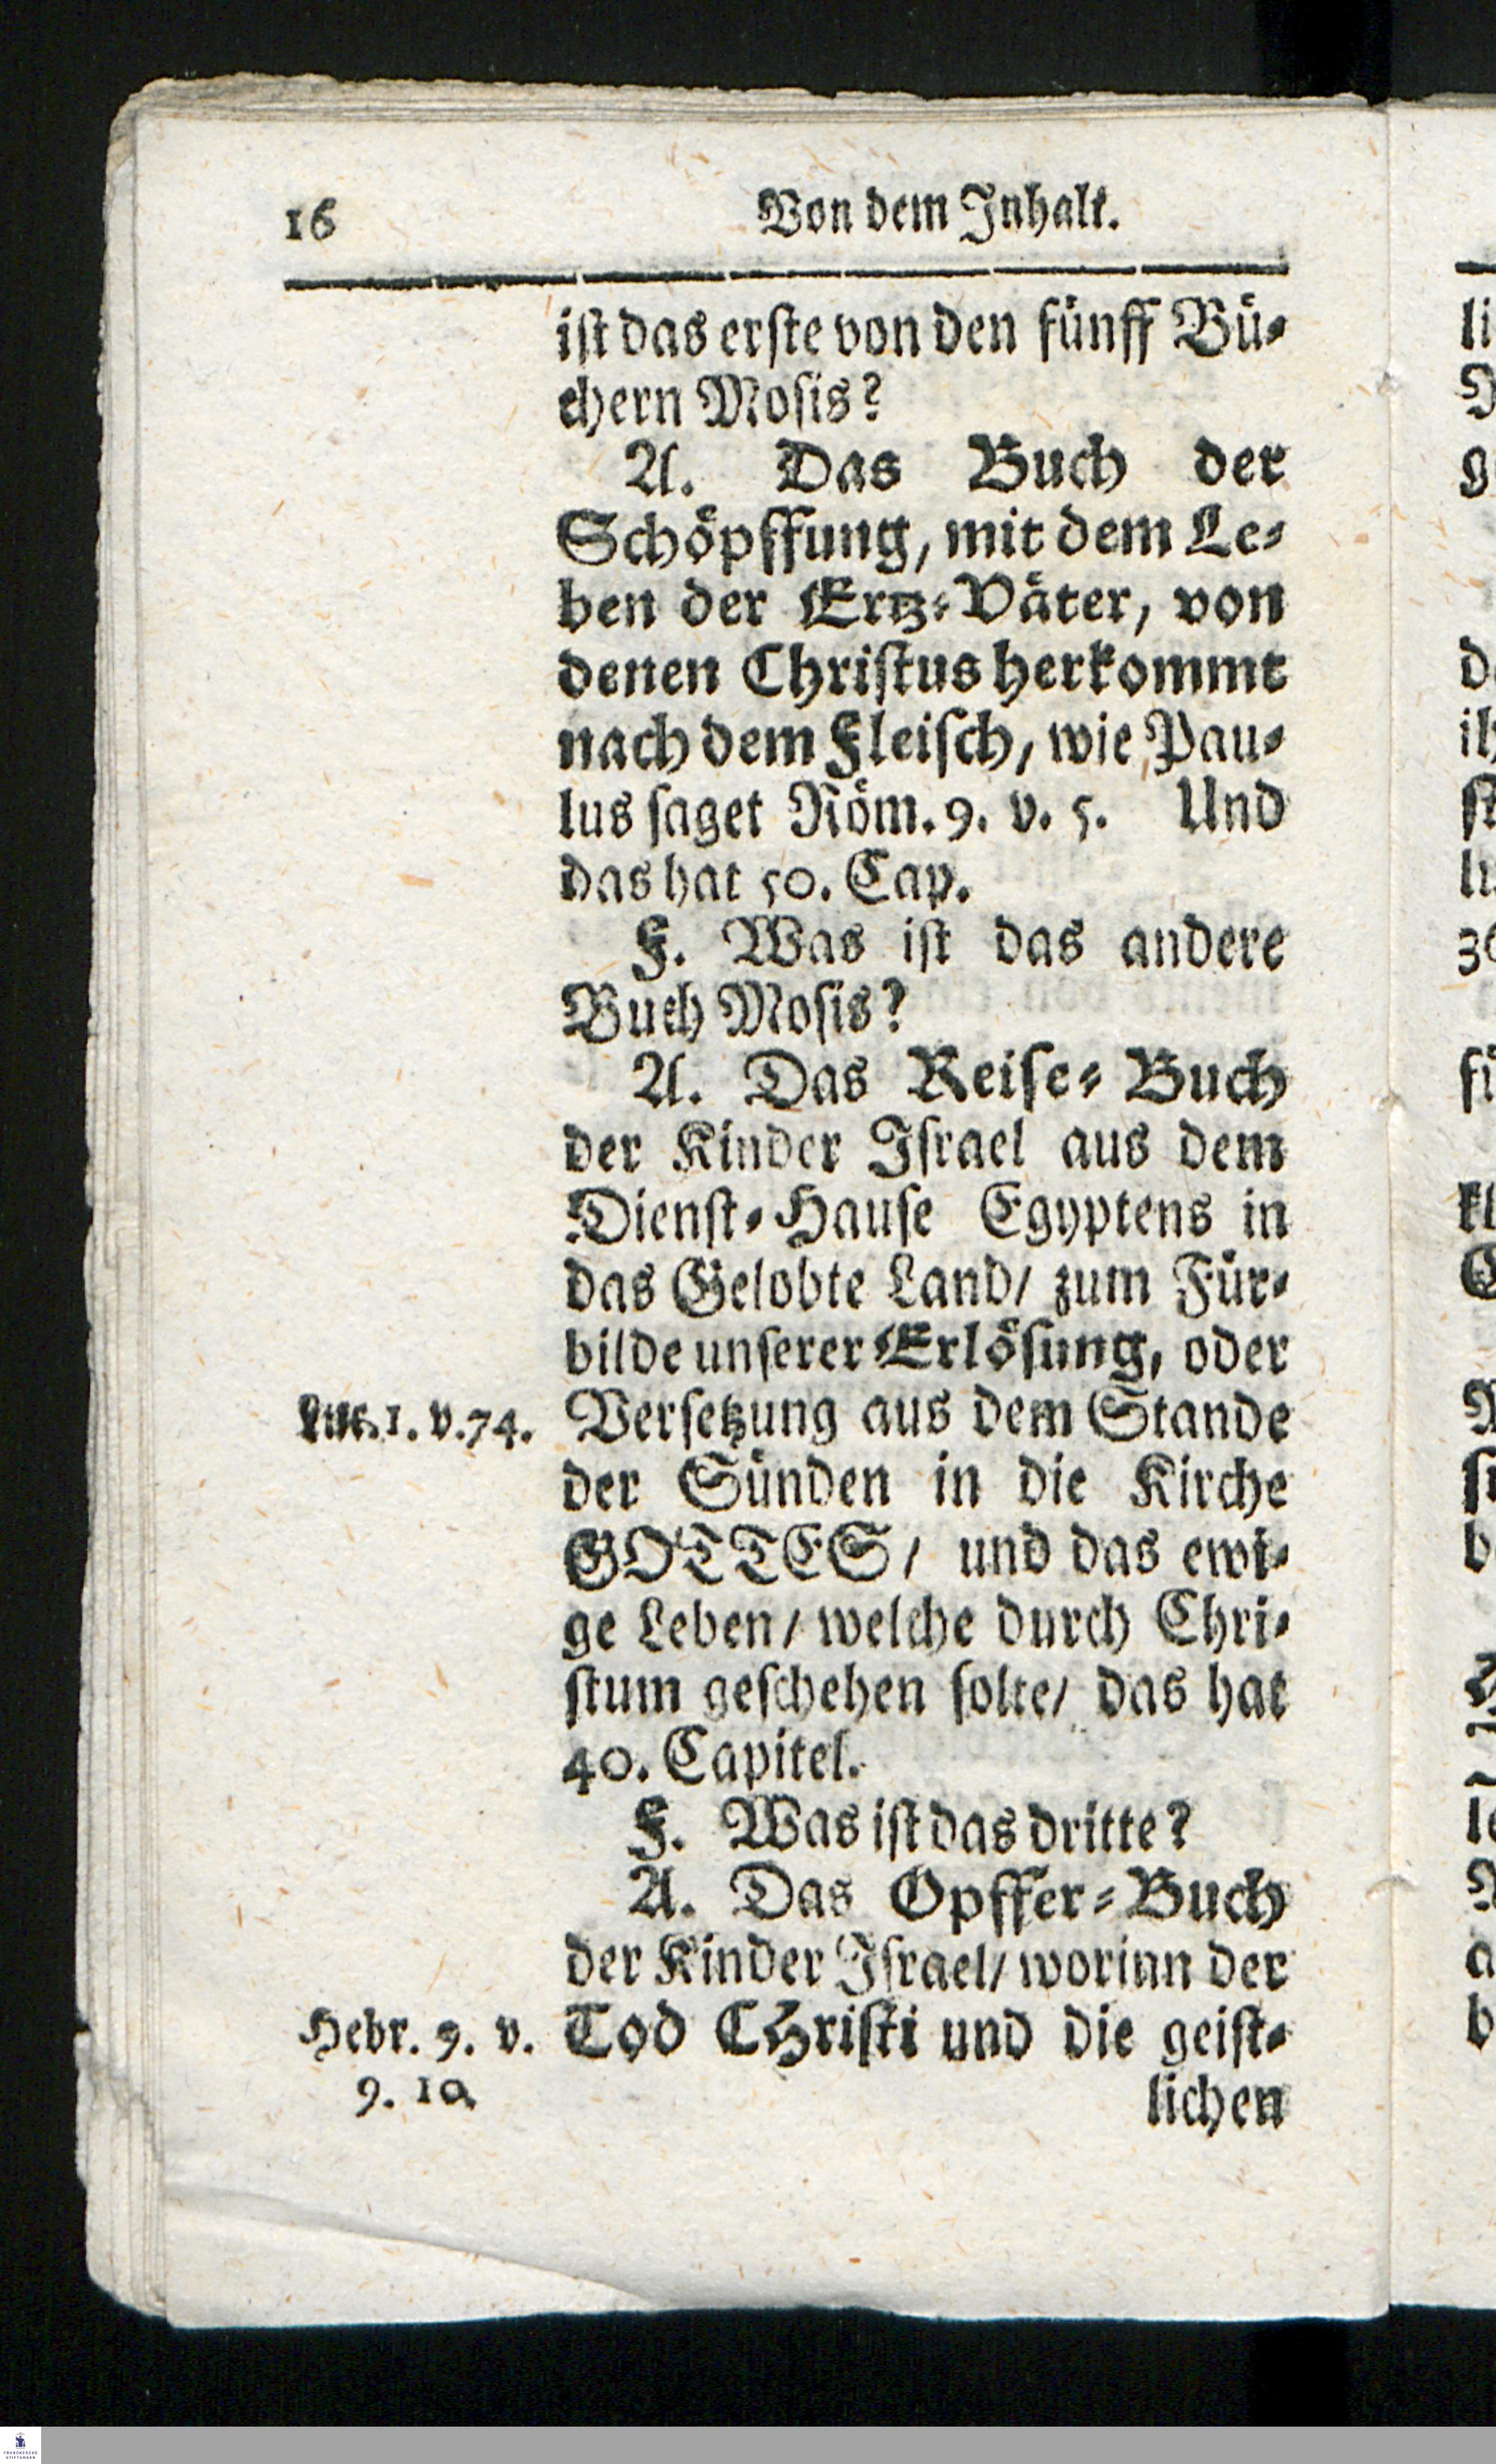 16 Von dem Inhalt.
ist das erste von den fünff Bü-
chern Mosis?
A. Das Buch der
Schöpffung, mit dem Le-
ben der Ertz-Väter, von
denen Christus herkommt
nach dem Fleisch, wie Pau-
lus saget Röm. 9. v. 5. Und
das hat 50. Cap.
F. Was ist das andere
Buch Mosis?
A. Das Reise-Buch
der Kinder Israel aus dem
Dienst-Hause Egyptens in
das Gelobte Land/ zum Für-
bilde unserer Erlösung, oder
Luc. 1. v. 74. Versetzung aus dem Stande
der Sünden in die Kirche
GOTTES/ und das ewi-
ge Leben/ welche durch Chri-
stum geschehen solte/ das hat
40. Capitel.
F. Was ist das dritte?
A. Das Opffer-Buch
der Kinder Israel/ worinn der
Hebr. 9. v. Tod CHristi und die geist-
9. 10
lichen